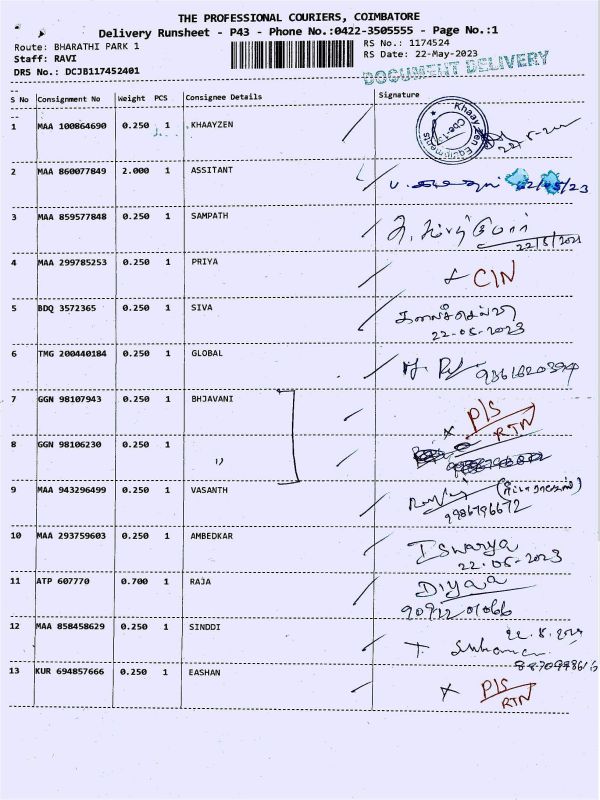 THE PROFESSIONAL COURIERS, COIMBATORE
Delivery Runsheet - P43 - Phone No.:0422-3505555 - Page No.:1
Route: BHARATHI PARK 1
RS No.: 1174524
Staff: RAVI
RS Date: 22-May-2023
DRS No.: DCJB117452401
DOCUMENT DELIVERY
S No Consignment No Weight PCS Consignee Details Signature
1 MAA 100864690 0.250 1 KHAAYZEN
Khaay Zen Equipments
2 MAA 860077849 2.000 1 ASSITANT 22/05/23
3 MAA 859577848 0.250 1 SAMPATH
4 MAA 299785253 0.250 1 PRIYA x CIN
5 BDQ 3572365 0.250 1 SIVA
22-05-2023
6 TMG 200440184 0.250 1 GLOBAL
7 GGN 98107943 0.250 1 BHJAVANI x P/S
RTN
8 GGN 98106230 0.250 1 "
9 MAA 943296499 0.250 1 VASANTH
9986796672
10 MAA 293759603 0.250 1 AMBEDKAR Iswarya
22-05-2023
11 ATP 607770 0.700 1 RAJA Diyaa
90922 01066
12 MAA 858458629 0.250 1 SINDDI
13 KUR 694857666 0.250 1 EASHAN x P/S
RTN